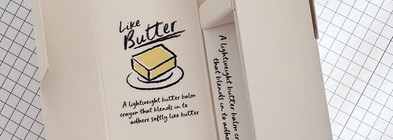 Like
Butter
A lightweight butter balm
crayon that blends in to
adhere softly like butter
A lightweight butter balm
that blends in to
adhere softly like butter